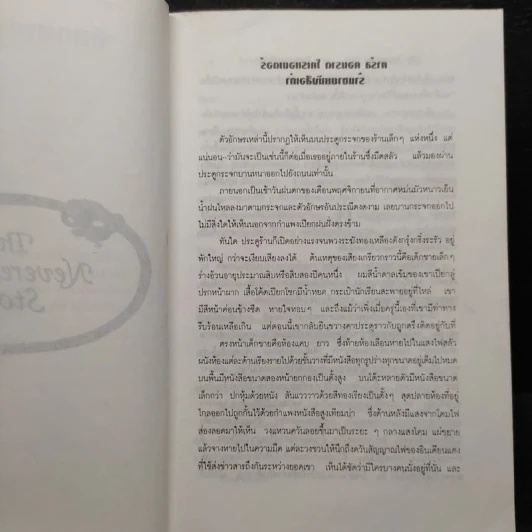 คาร์ล คอนราด โคเรแอนเดอร์
ร้านขายหนังสือเก่า
ตัวอักษรเหล่านี้ปรากฏให้เห็นบนประตูกระจกของร้านเล็กๆ แห่งหนึ่ง แต่
แน่นอน—ว่ามันจะเป็นเช่นนี้ก็ต่อเมื่อเธออยู่ภายในร้านซึ่งมืดสลัว แล้วมองผ่าน
ประตูกระจกบานหนาออกไปยังถนนเท่านั้น
ภายนอกเป็นเช้าวันฝนตกของเดือนพฤศจิกายนที่อากาศหม่นมัวหนาวเย็น
น้ำฝนไหลลงมาตามกระจกและตัวอักษรอันประณีตงดงาม เลยบานกระจกออกไป
ไม่มีสิ่งใดให้เห็นนอกจากกำแพงเปียกฝนฝั่งตรงข้าม
ทันใด ประตูร้านก็เปิดอย่างแรงจนพวงระฆังทองเหลืองดังกรุ๋งกริ๋งระรัว อยู่
พักใหญ่ กว่าจะเงียบเสียงลงได้ ต้นเหตุของเสียงเกรียวกราวนี้คือเด็กชายเล็กๆ
ร่างอ้วนอายุประมาณสิบหรือสิบสองปีคนหนึ่ง ผมสีน้ำตาลเข้มของเขาเปียกลู่
ปรกหน้าผาก เสื้อโค้ตเปียกโชกมีน้ำหยด กระเป๋านักเรียนสะพายอยู่ที่ไหล่ เขา
มีสีหน้าค่อนข้างซีด หายใจหอบๆ และถึงแม้ว่าเพิ่งเมื่อครู่นี้เองที่เขามีท่าทาง
รีบร้อนเหลือเกิน แต่ตอนนี้เขากลับยืนขวางคาประตูราวกับถูกตรึงติดอยู่กับที่
ตรงหน้าเด็กชายคือห้องแคบ ยาว ซึ่งท้ายห้องเลือนหายไปในแสงไฟสลัว
ผนังห้องแต่ละด้านเรียงรายไปด้วยชั้นวางที่มีหนังสือทุกรูปร่างทุกขนาดอยู่เต็มไปหมด
บนพื้นมีหนังสือขนาดสองหน้ายกกองเป็นตั้งสูง บนโต๊ะหลายตัวมีหนังสือขนาด
เล็กกว่า ปกหุ้มด้วยหนัง สันแวววาวด้วยสีทองเรียงเป็นตั้งๆ สุดปลายห้องที่อยู่
ไกลออกไปถูกกั้นไว้ด้วยกำแพงหนังสือสูงเทียมบ่า ซึ่งด้านหลังมีแสงจากโคมไฟ
ส่องลอดมาให้เห็น วงแหวนควันลอยขึ้นมาเป็นระยะ ๆ กลางแสงโคม แผ่ขยาย
แล้วจางหายไปในความมืด แต่ละวงชวนให้นึกถึงควันสัญญาณไฟของอินเดียนแดง
ที่ใช้ส่งข่าวสารถึงกันระหว่างยอดเขา เห็นได้ชัดว่ามีใครบางคนนั่งอยู่ที่นั่น และ